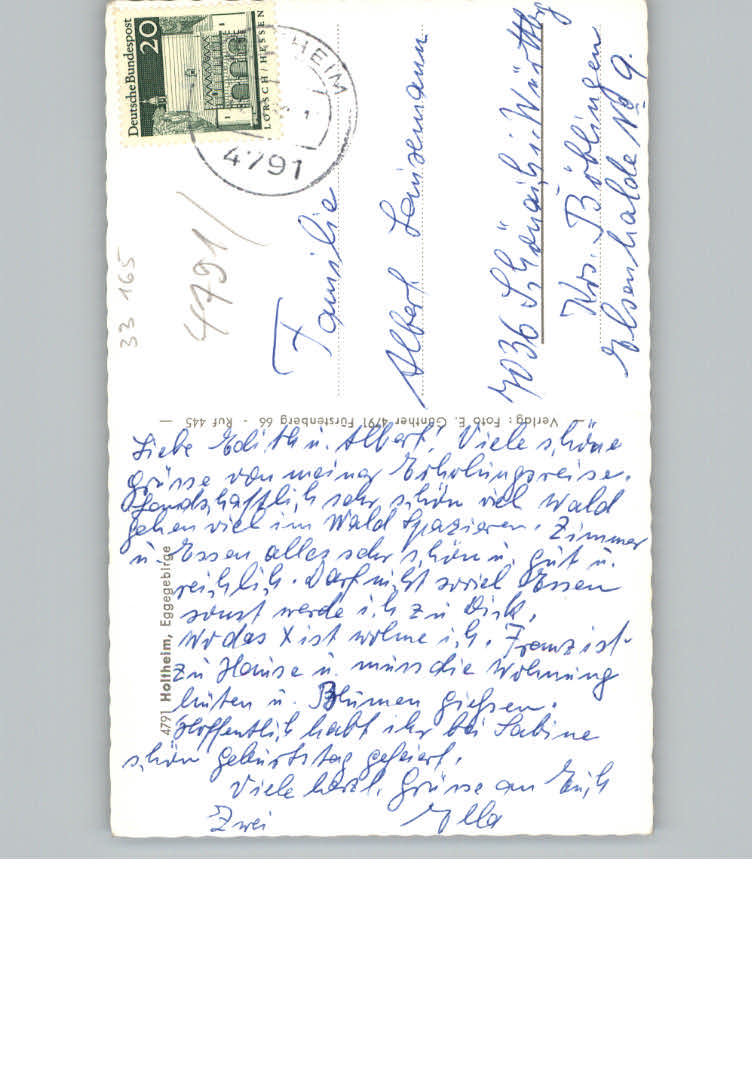 Deutsche Bundespost
20
LORSCH / HESSEN
HEIM
4791
33 165
4791/
Familie
Albert
7036 Schönaich i. Württbg
Krs. Böblingen
Elsenhalde No 9.
Verlag: Foto E. Günther 4791 Fürstenberg 66 - Ruf 445
4791 Holtheim, Eggegebirge
Liebe Edith u. Albert! Viele schöne
Grüsse von meiner Erholungsreise.
Landschaftlich sehr schön viel Wald
gehen viel im Wald Spazieren. Zimmer
u. Essen alles sehr schön u. gut u.
reichlich. Darf nicht soviel Essen
sonst werde ich zu Dick.
Wo das X ist wohne ich. Franz ist
zu Hause u. muss die Wohnung
hüten u. Blumen gießen.
Hoffentlich habt ihr bei Sabine
schön Geburtstag gefeiert.
Viele herzl. Grüsse an Euch
Zwei Ella